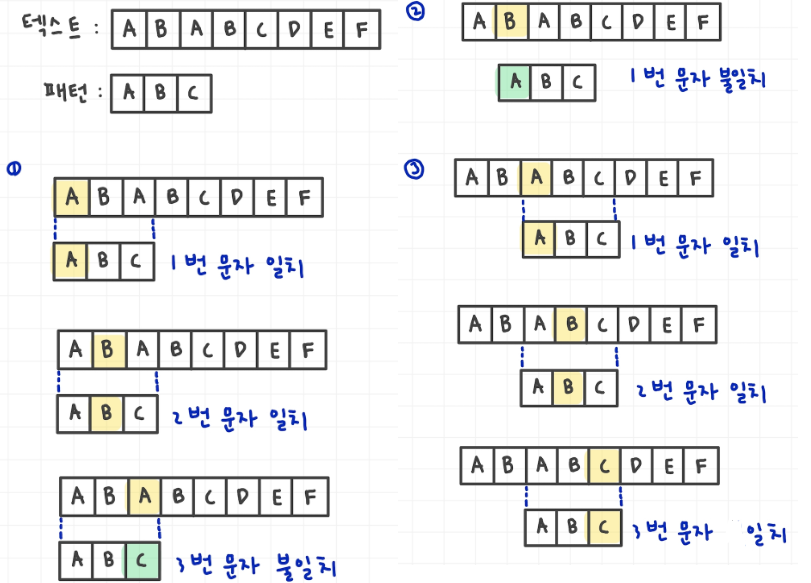 텍스트 : A B A B C D E F
패턴 : A B C
①
A B A B C D E F
A B C 1번 문자 일치
A B A B C D E F
A B C 2번 문자 일치
A B A B C D E F
A B C 3번 문자 불일치
②
A B A B C D E F
A B C 1번 문자 불일치
③
A B A B C D E F
A B C 1번 문자 일치
A B A B C D E F
A B C 2번 문자 일치
A B A B C D E F
A B C 3번 문자 일치